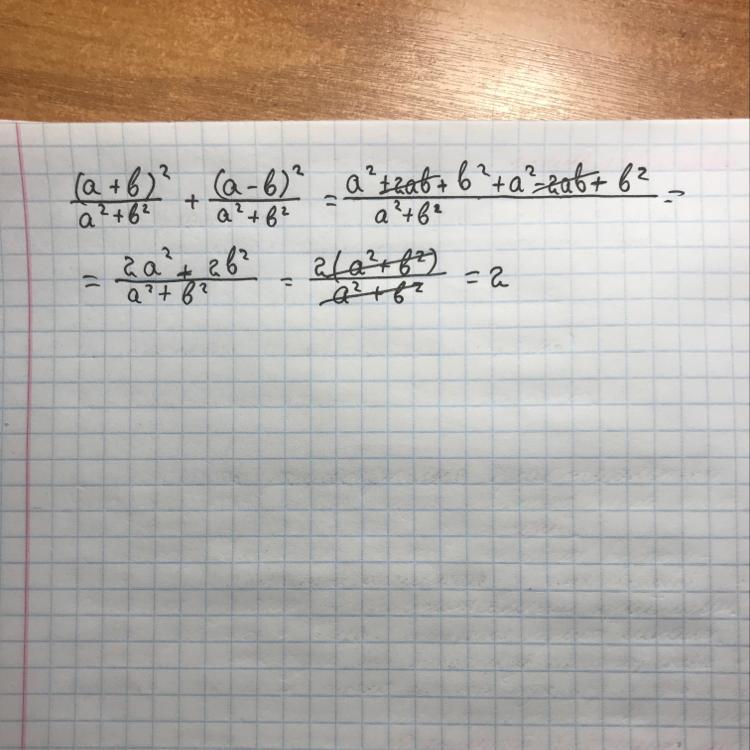 (a+b)²/(a²+b²) + (a-b)²/(a²+b²) = (a²+2ab+b²+a²-2ab+b²)/(a²+b²) =
= (2a²+2b²)/(a²+b²) = 2(a²+b²)/(a²+b²) = 2